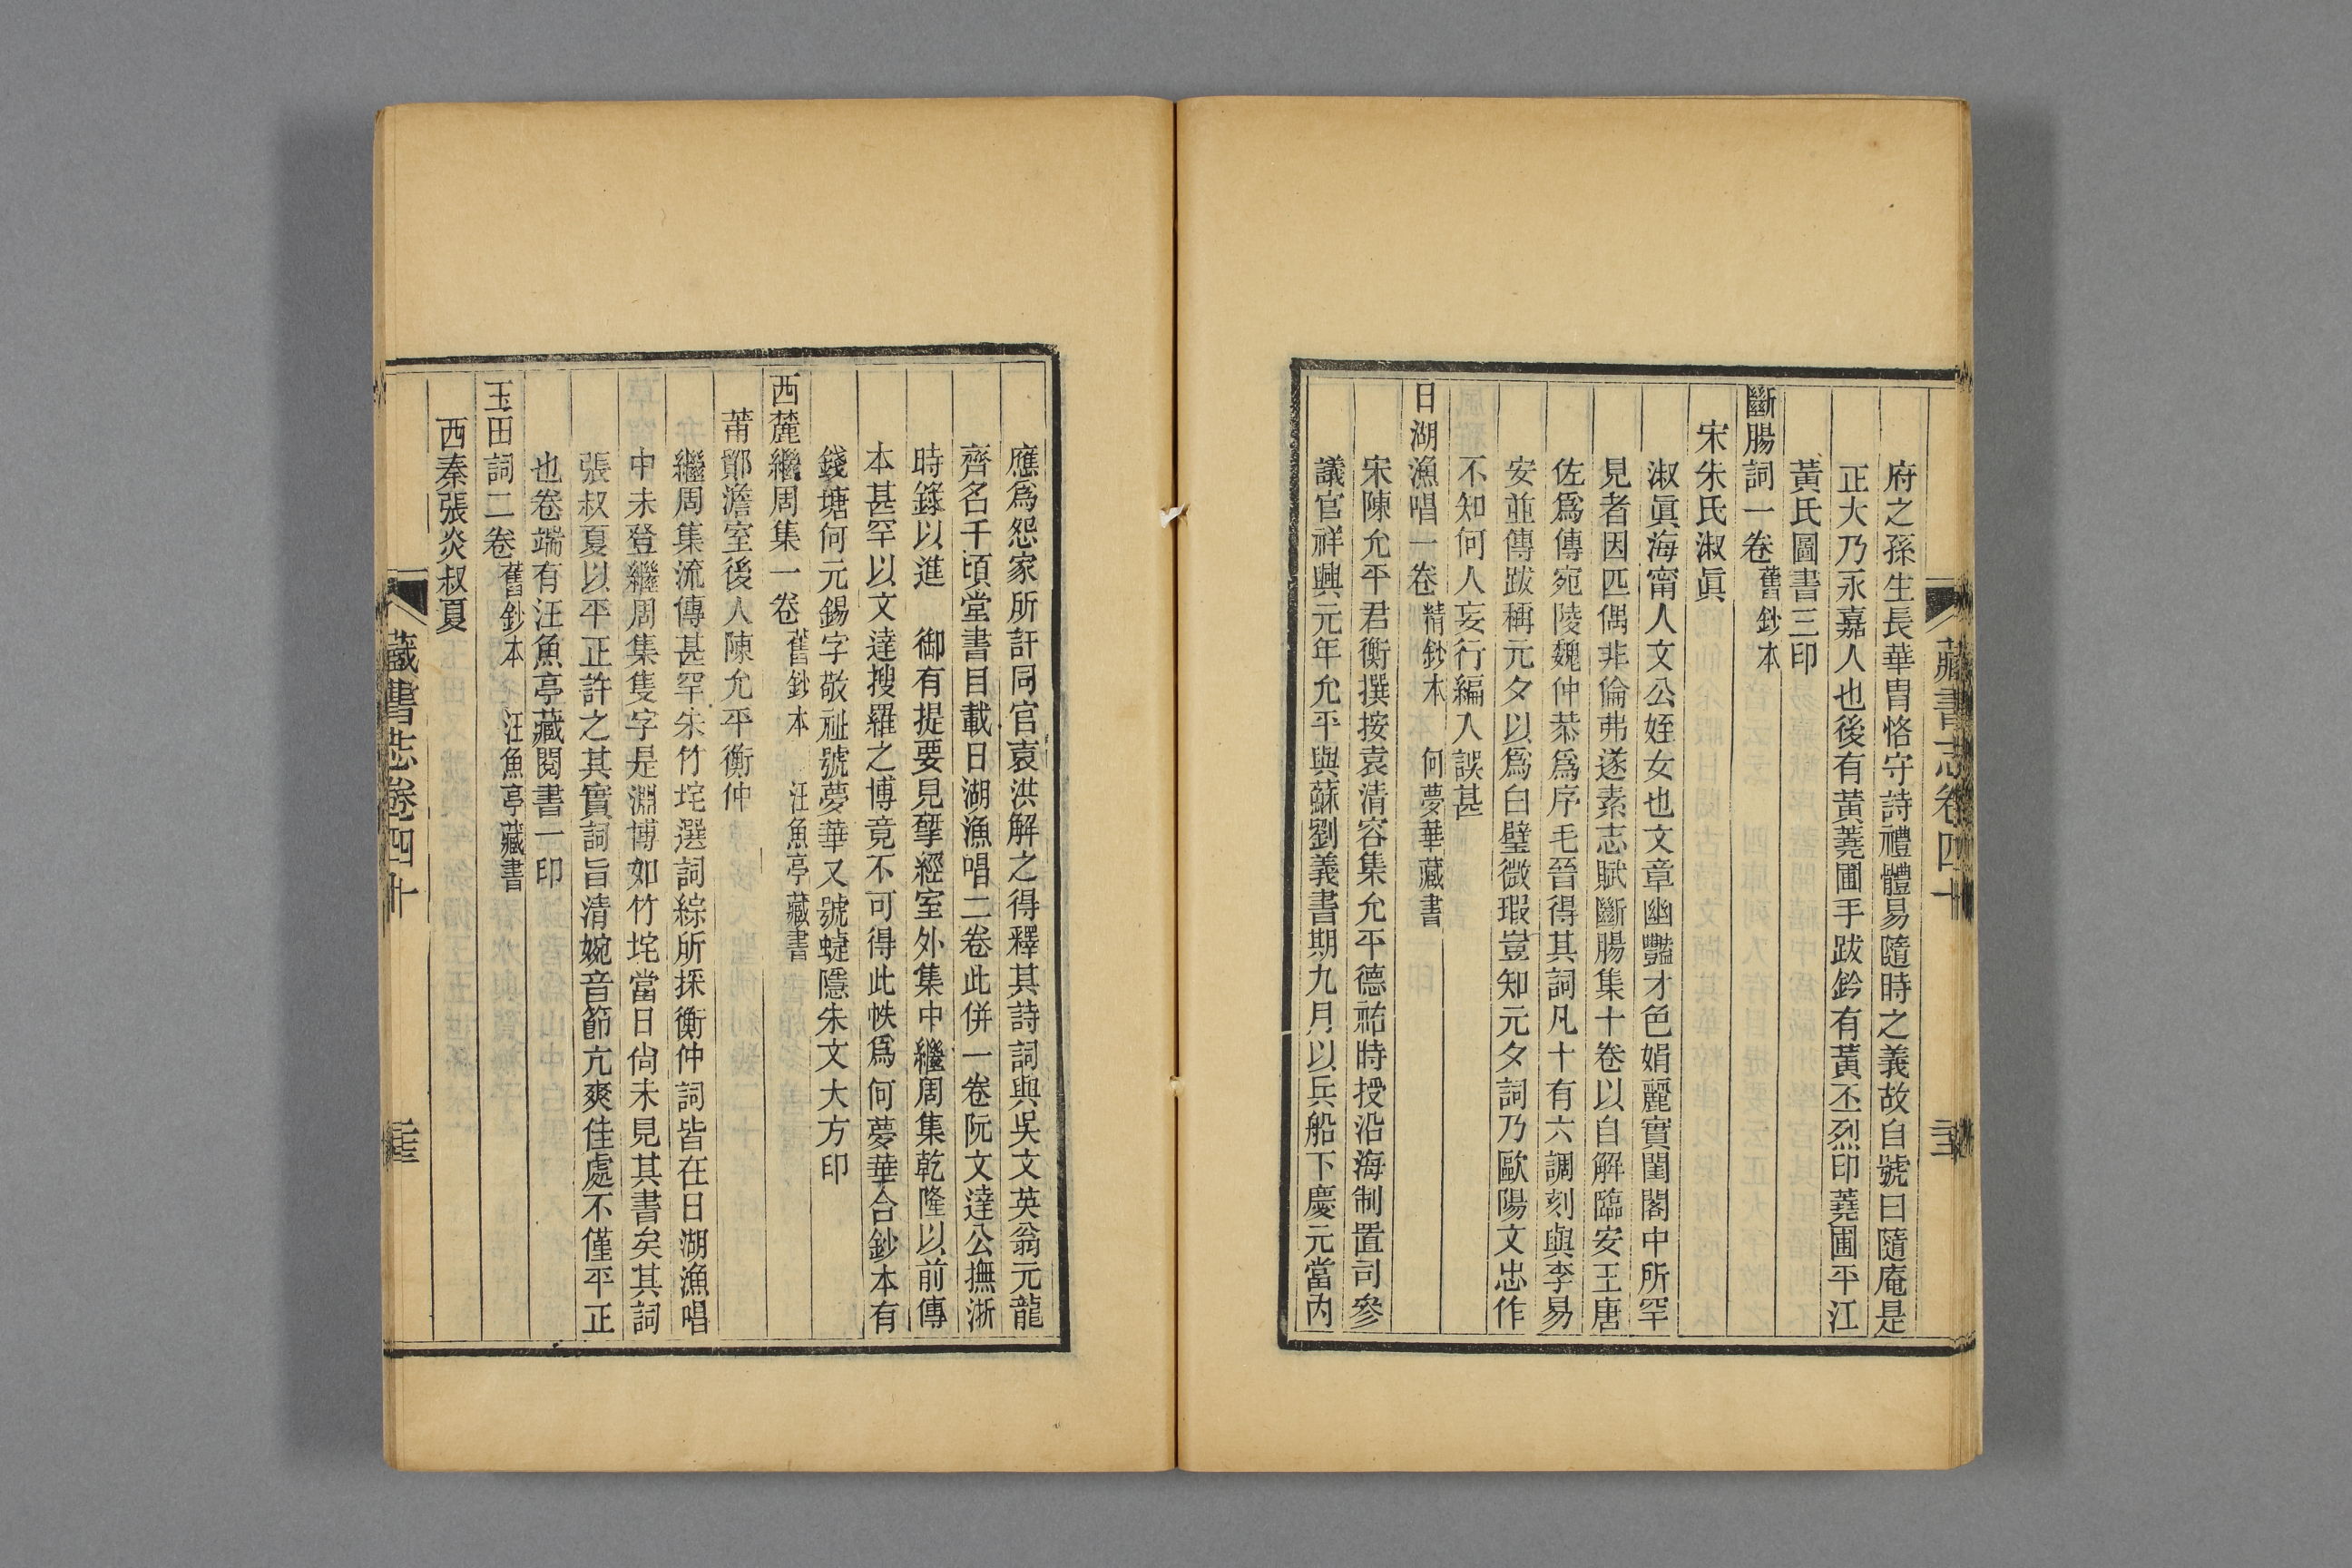 藏書志卷四十
府之孫生長華胄恪守詩禮體易隨時之義故自號曰隨庵是
正大乃永嘉人也後有黃蕘圃手跋鈐有黃丕烈印蕘圃平江
黃氏圖書三印
斷腸詞一卷 舊鈔本
宋朱氏淑眞
淑眞海甯人文公姪女也文章幽豔才色娟麗實閨閣中所罕
見者因匹偶非倫弗遂素志賦斷腸集十卷以自解臨安王唐
佐爲傳宛陵魏仲恭爲序毛晉得其詞凡十有六調刻與李易
安並傳跋稱元夕以爲白璧微瑕豈知元夕詞乃歐陽文忠作
不知何人妄行編入誤甚
日湖漁唱一卷 精鈔本 何夢華藏書
宋陳允平君衡撰按袁清容集允平德祐時授沿海制置司參
議官祥興元年允平與蘇劉義書期九月以兵船下慶元當內
應爲怨家所訐同官袁洪解之得釋其詩詞與吳文英翁元龍
齊名千頃堂書目載日湖漁唱二卷此併一卷阮文達公撫浙
時錄以進 御有提要見揅經室外集中繼周集乾隆以前傳
本甚罕以文達搜羅之博竟不可得此帙爲何夢華合鈔本有
錢塘何元錫字敬祉號夢華又號蜨隱朱文大方印
西麓繼周集一卷 舊鈔本 汪魚亭藏書
莆鄭澹室後人陳允平衡仲
繼周集流傳甚罕朱竹垞選詞綜所採衡仲詞皆在日湖漁唱
中未登繼周集隻字是淵博如竹垞當日尙未見其書矣其詞
張叔夏以平正許之其實詞旨清婉音節亢爽佳處不僅平正
也卷端有汪魚亭藏閱書一印
玉田詞二卷 舊鈔本 汪魚亭藏書
西秦張炎叔夏
藏書志卷四十